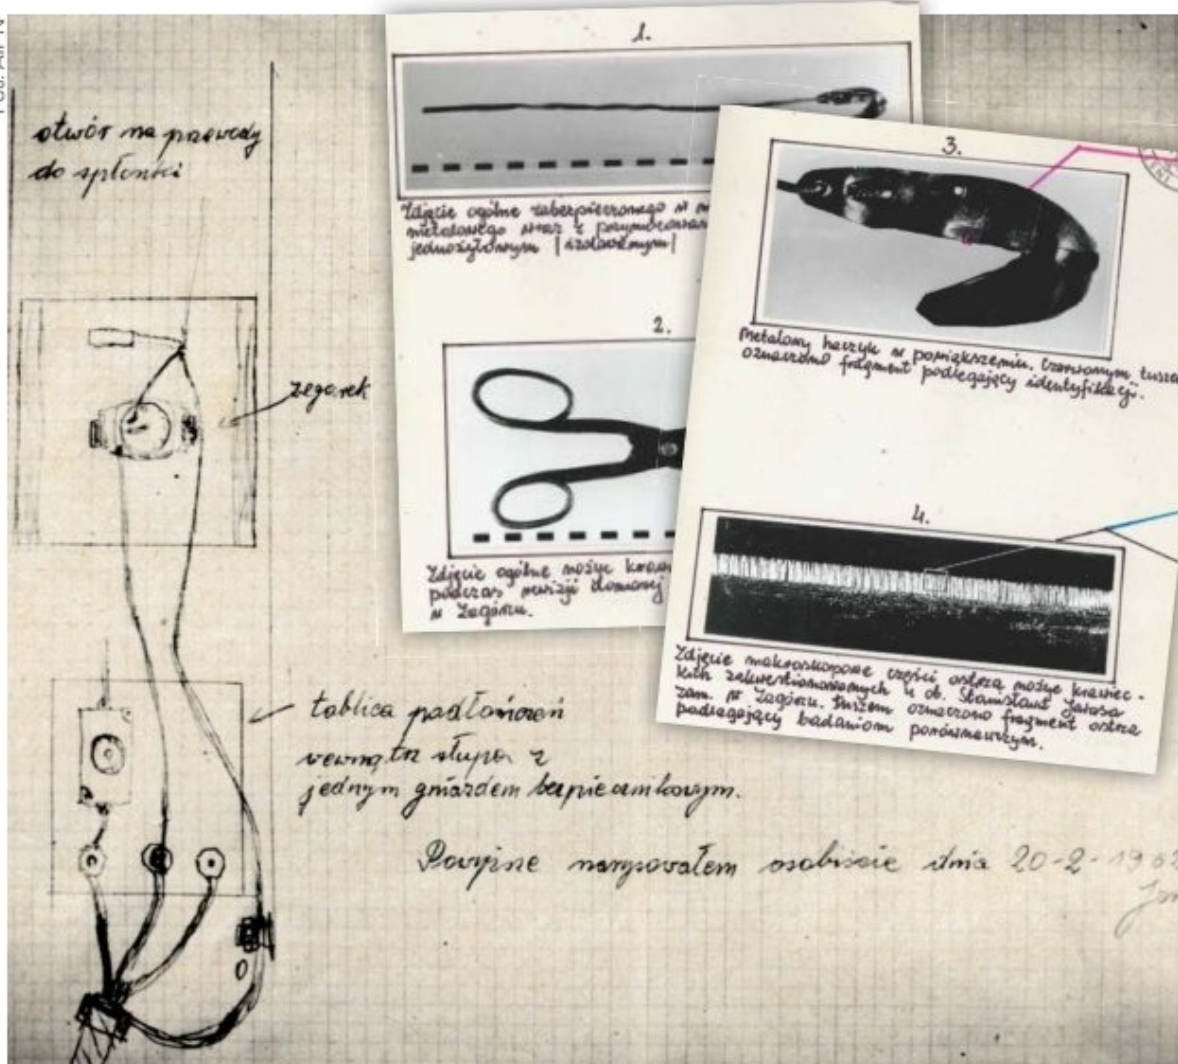 Fot. AIPN
otwór na przewody
do spłonki
zegarek
tablica podłączeń
wewnątrz słupa z
jednym gniazdem bezpiecznikowym.
Powyższe narysowałem osobiście dnia 20-2-1962
1.
Zdjęcie ogólne zabezpieczonego w
metalowego wraz z przymocowan
jednożyłowym |izolowanym|
2.
Zdjęcie ogólne nożyc krawi
podczas rewizji domowej
w Zagórzu.
3.
Metalowy haczyk w powiększeniu. Czerwonym tusze
oznaczono fragment podlegający identyfikacji.
4.
Zdjęcie makroskopowe części ostrza nożyc krawiec-
kich zakwestionowanych u ob. Stanisława Jarosa
zam. w Zagórzu. Tuszem oznaczono fragment ostrza
podlegający badaniom porównawczym.